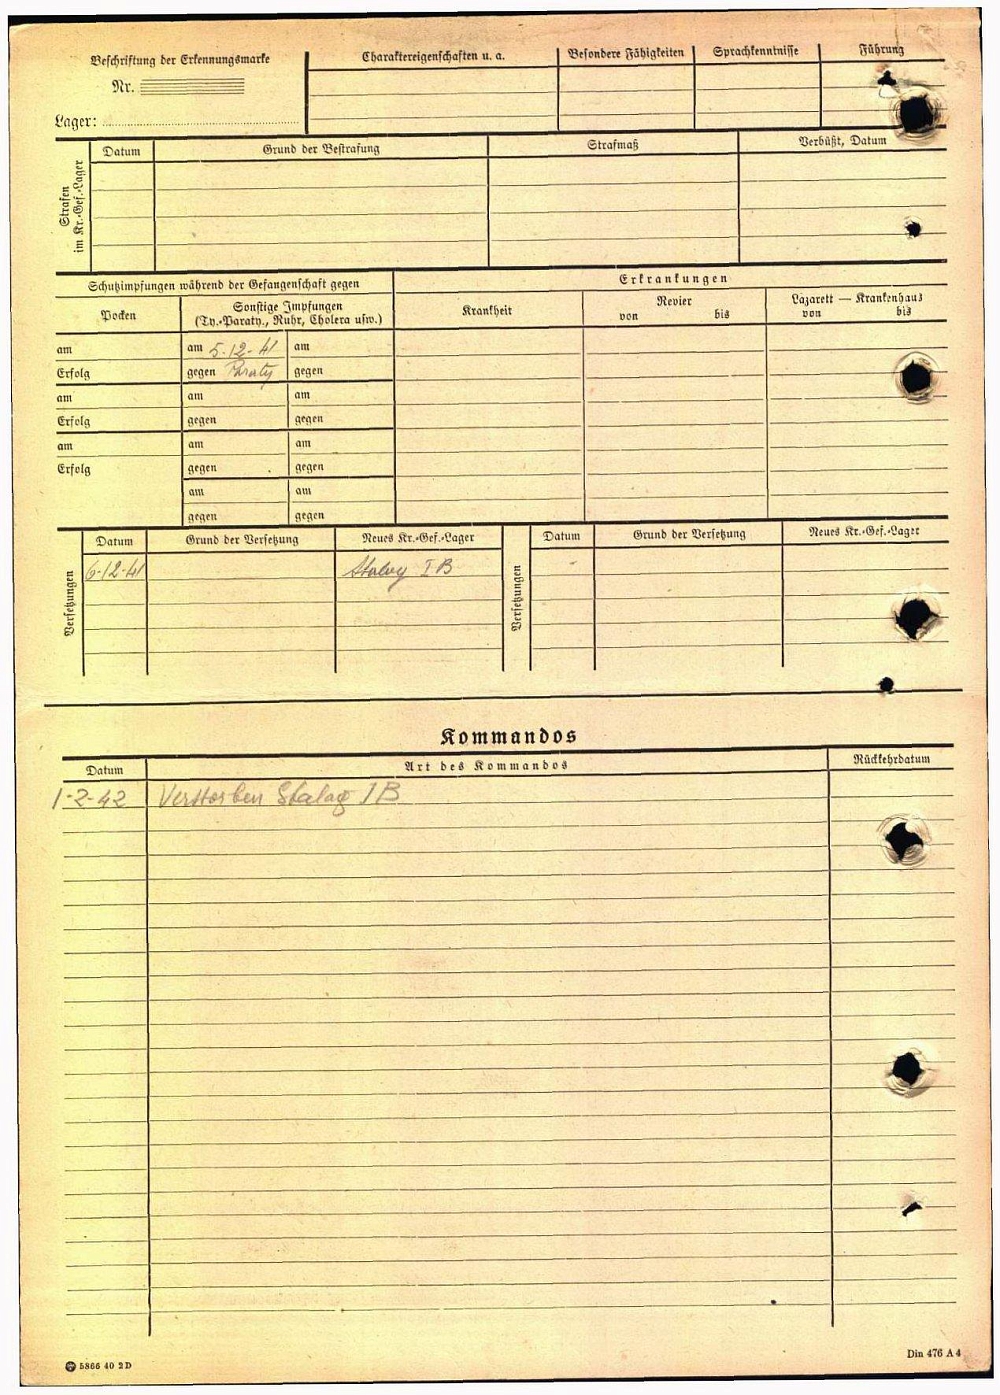 Beschriftung der Erkennungsmarke
Nr.
Lager:
Charaktereigenschaften u. a.
Besondere Fähigkeiten
Sprachkenntnisse
Führung
Strafen
im Kr.-Gef.-Lager
Datum
Grund der Bestrafung
Strafmaß
Verbüßt, Datum
Schutzimpfungen während der Gefangenschaft gegen
Erkrankungen
Pocken
Sonstige Impfungen
(Ty.-Paraty., Ruhr, Cholera usw.)
Krankheit
Revier
von bis
Lazarett — Krankenhaus
von bis
am am 5-12-41 am
Erfolg gegen Paraty gegen
am am am
Erfolg gegen gegen
am am am
Erfolg gegen gegen
am am
gegen gegen
Versetzungen
Datum Grund der Versetzung Neues Kr.-Gef.-Lager
6-12-41 Stalag IB
Versetzungen
Datum Grund der Versetzung Neues Kr.-Gef.-Lager
Kommandos
Datum Art des Kommandos Rückkehrdatum
1-2-42 Verstorben Stalag IB
5866 40 2D
Din 476 A 4